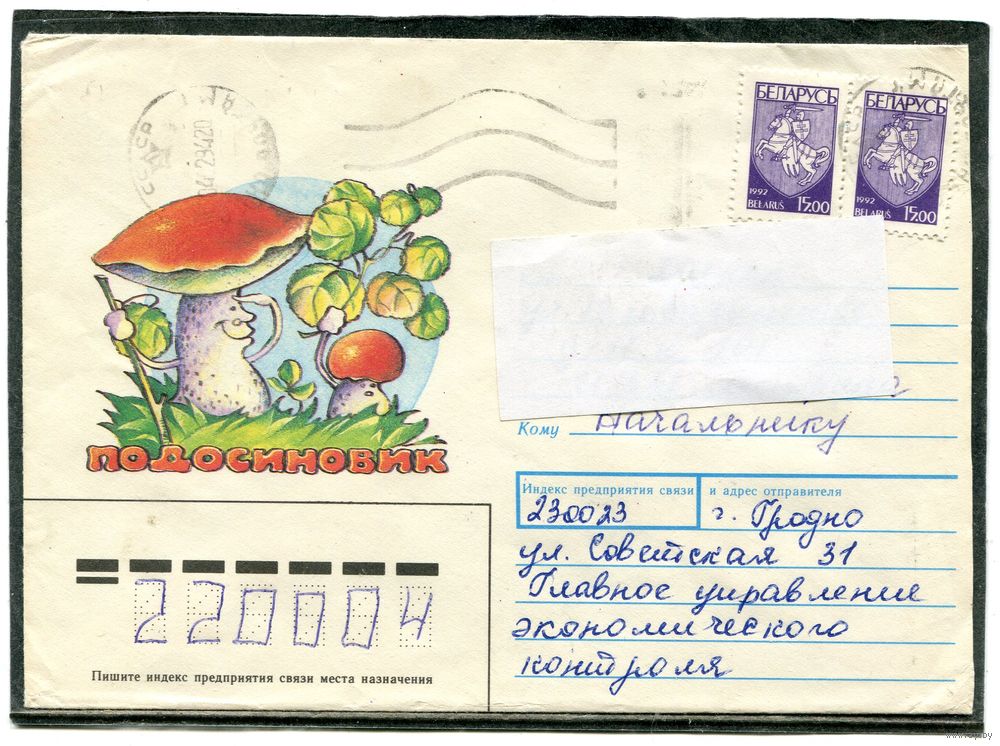 БЕЛАРУСЬ
1992
BELARUS
15.00
БЕЛАРУСЬ
1992
BELARUS
15.00
СССР
ПОДОСИНОВИК
Кому Начальнику
Индекс предприятия связи и адрес отправителя
230023 г. Гродно
ул. Советская 31
Главное управление
экономического
контроля
220004
Пишите индекс предприятия связи места назначения